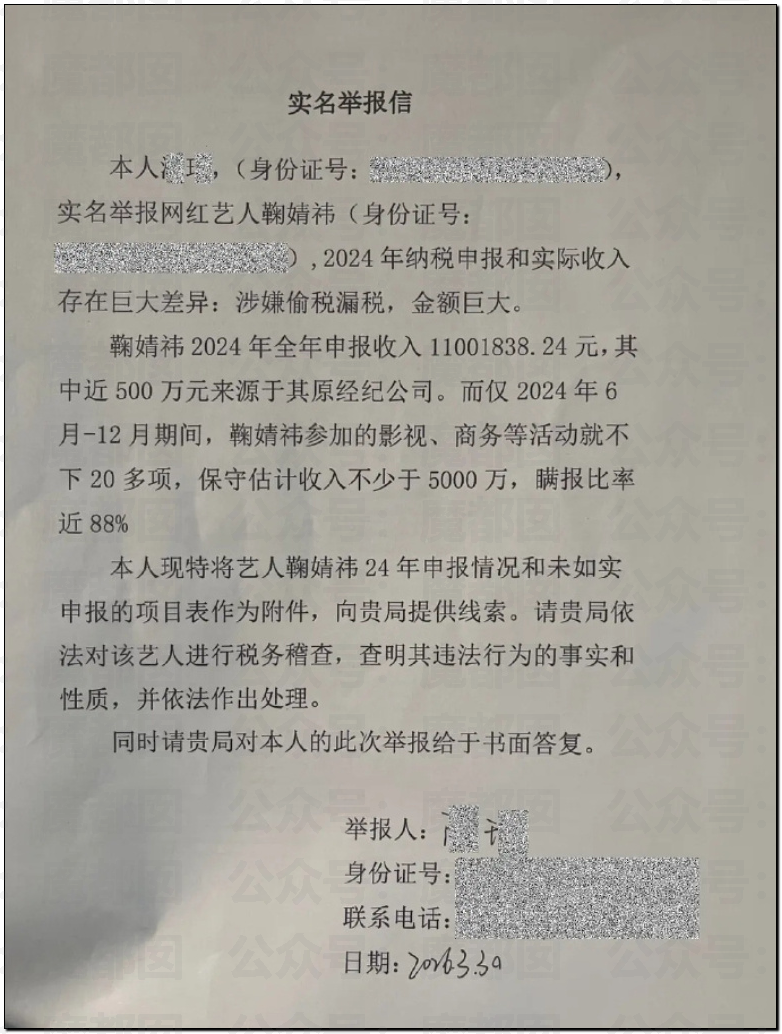 实名举报信
本人,(身份证号:),
实名举报网红艺人鞠婧祎(身份证号:
),2024年纳税申报和实际收入
存在巨大差异:涉嫌偷税漏税,金额巨大。
鞠婧祎2024年全年申报收入11001838.24元,其
中近500万元来源于其原经纪公司。而仅2024年6
月-12月期间,鞠婧祎参加的影视、商务等活动就不
下20多项,保守估计收入不少于5000万,瞒报比率
近88%
本人现特将艺人鞠婧祎24年申报情况和未如实
申报的项目表作为附件,向贵局提供线索。请贵局依
法对该艺人进行税务稽查,查明其违法行为的事实和
性质,并依法作出处理。
同时请贵局对本人的此次举报给于书面答复。
举报人:
身份证号:
联系电话:
日期:2026.3.30